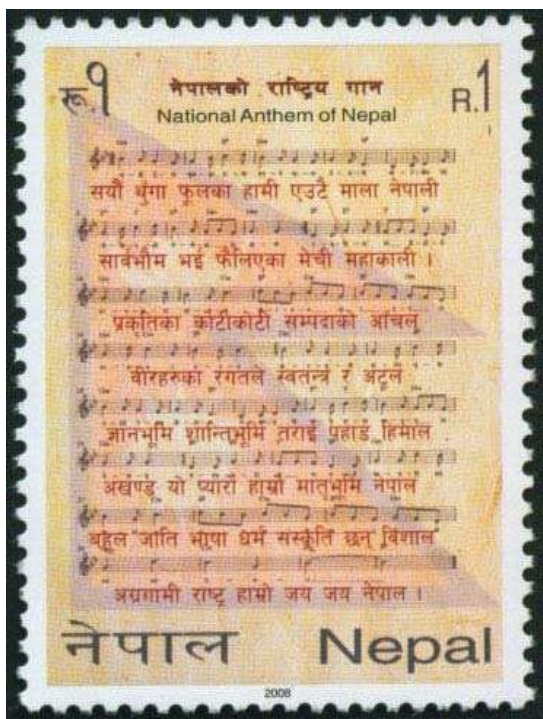 रू.१ R.1
नेपालको राष्ट्रिय गान
National Anthem of Nepal
सयौं थुंगा फूलका हामी एउटै माला नेपाली
सार्वभौम भई फैलिएका मेची महाकाली ।
प्रकृतिका कोटीकोटी सम्पदाको आंचल
वीरहरुका रगतले स्वतन्त्र र अटल
ज्ञानभूमि शान्तिभूमि तराई पहाड हिमाल
अखण्ड यो प्यारो हाम्रो मातृभूमि नेपाल
बहुल जाति भाषा धर्म संस्कृति छन् विशाल
अग्रगामी राष्ट्र हाम्रो जय जय नेपाल ।
नेपाल Nepal
2008